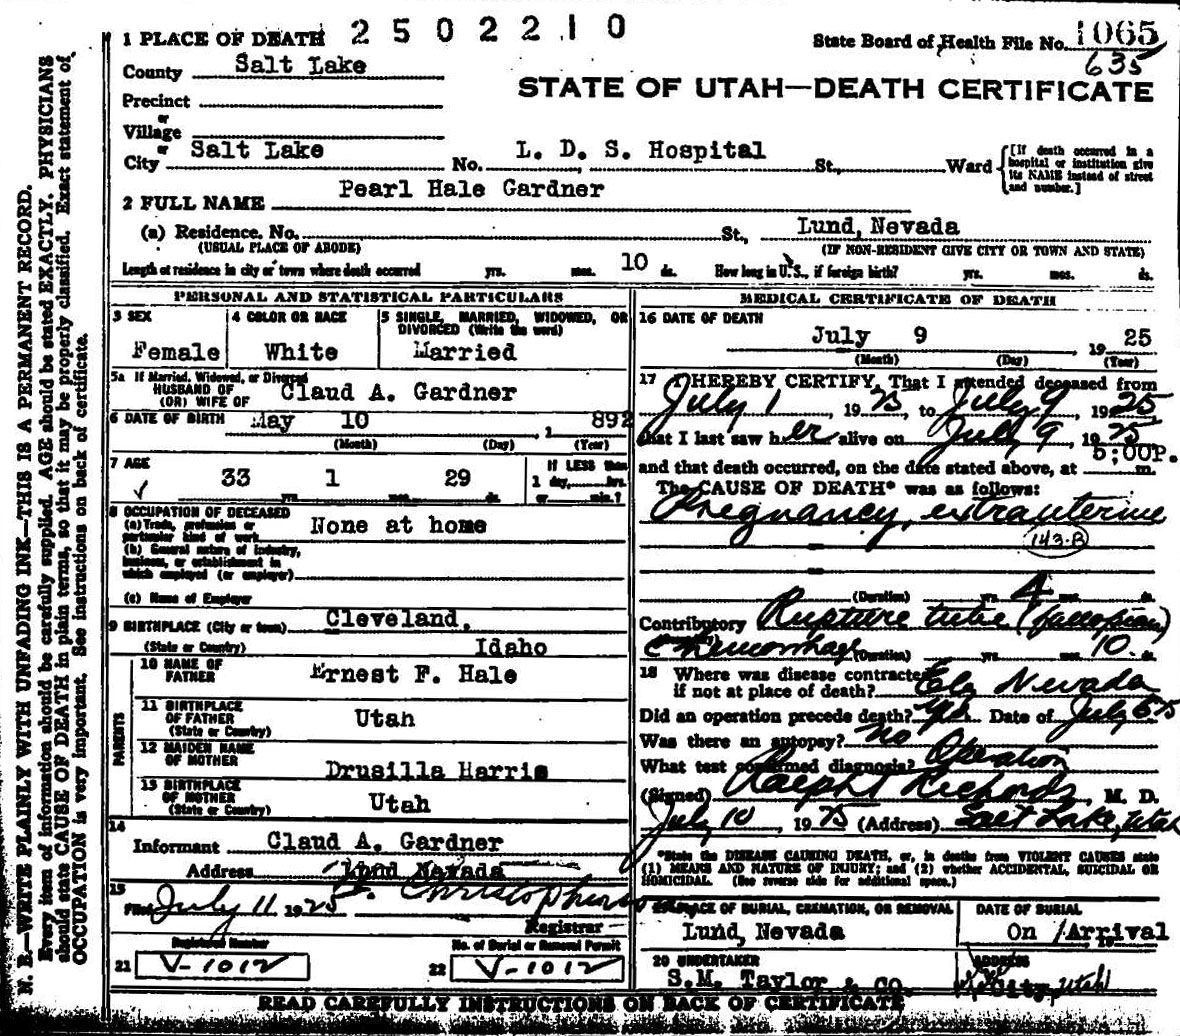 1 PLACE OF DEATH 2 5 0 2 2 1 0
State Board of Health File No. 1065
635
County Salt Lake
STATE OF UTAH—DEATH CERTIFICATE
Precinct
or
Village
or
City Salt Lake No. L. D. S. Hospital St., Ward
[If death occurred in a hospital or institution give its NAME instead of street and number.]
2 FULL NAME Pearl Hale Gardner
(a) Residence. No. St., Lund, Nevada
(USUAL PLACE OF ABODE) (IF NON-RESIDENT GIVE CITY OR TOWN AND STATE)
Length of residence in city or town where death occurred yrs. mos. 10 ds. How long in U.S., if foreign birth? yrs. mos. ds.
PERSONAL AND STATISTICAL PARTICULARS
3 SEX
Female
4 COLOR OR RACE
White
5 SINGLE, MARRIED, WIDOWED, OR
DIVORCED (Write the word)
Married
5a If Married, Widowed, or Divorced
HUSBAND OF
(OR) WIFE OF Claud A. Gardner
6 DATE OF BIRTH May 10 1 892
(Month) (Day) (Year)
7 AGE
33 yrs. 1 mos. 29 ds.
If LESS than
1 day, hrs.
or min.?
8 OCCUPATION OF DECEASED
(a) Trade, profession or
particular kind of work None at home
(b) General nature of industry,
business, or establishment in
which employed (or employer)
(c) Name of Employer
9 BIRTHPLACE (City or town) Cleveland,
(State or Country) Idaho
PARENTS
10 NAME OF
FATHER Ernest F. Hale
11 BIRTHPLACE
OF FATHER Utah
(State or Country)
12 MAIDEN NAME
OF MOTHER Drusilla Harris
13 BIRTHPLACE
OF MOTHER Utah
(State or Country)
14
Informant Claud A. Gardner
Address Lund Nevada
15
Filed July 11 1925
Registrar
Registered Number
21 V-1012
No. of Burial or Removal Permit
22 V-1012
MEDICAL CERTIFICATE OF DEATH
16 DATE OF DEATH
July 9 19 25
(Month) (Day) (Year)
17 I HEREBY CERTIFY, That I attended deceased from
July 1, 1925, to July 9, 1925,
that I last saw her alive on July 9, 1925
and that death occurred, on the date stated above, at 5:00P. m.
The CAUSE OF DEATH* was as follows:
Pregnancy, extrauterine
143-B
(Duration) yrs. 4 mos. ds.
Contributory Rupture tube (fallopian)
Hemorrhage (Duration) yrs. mos. 10 ds.
18 Where was disease contracted
if not at place of death? Ely Nevada
Did an operation precede death? Yes Date of July 6 25
Was there an autopsy? no
What test confirmed diagnosis? Operation
(Signed) Ralph T Richards, M. D.
July 10, 1925 (Address) Salt Lake, Utah
*State the DISEASE CAUSING DEATH, or, in deaths from VIOLENT CAUSES state
(1) MEANS AND NATURE OF INJURY; and (2) whether ACCIDENTAL, SUICIDAL OR
HOMICIDAL. (See reverse side for additional space.)
PLACE OF BURIAL, CREMATION, OR REMOVAL
Lund, Nevada
DATE OF BURIAL
On Arrival
20 UNDERTAKER
S.M. Taylor & CO.
ADDRESS
City, Utah
READ CAREFULLY INSTRUCTIONS ON BACK OF CERTIFICATE
N. B.—WRITE PLAINLY WITH UNFADING INK—THIS IS A PERMANENT RECORD.
Every item of information should be carefully supplied. AGE should be stated EXACTLY. PHYSICIANS
should state CAUSE OF DEATH in plain terms, so that it may be properly classified. Exact statement of
OCCUPATION is very important. See instructions on back of certificate.